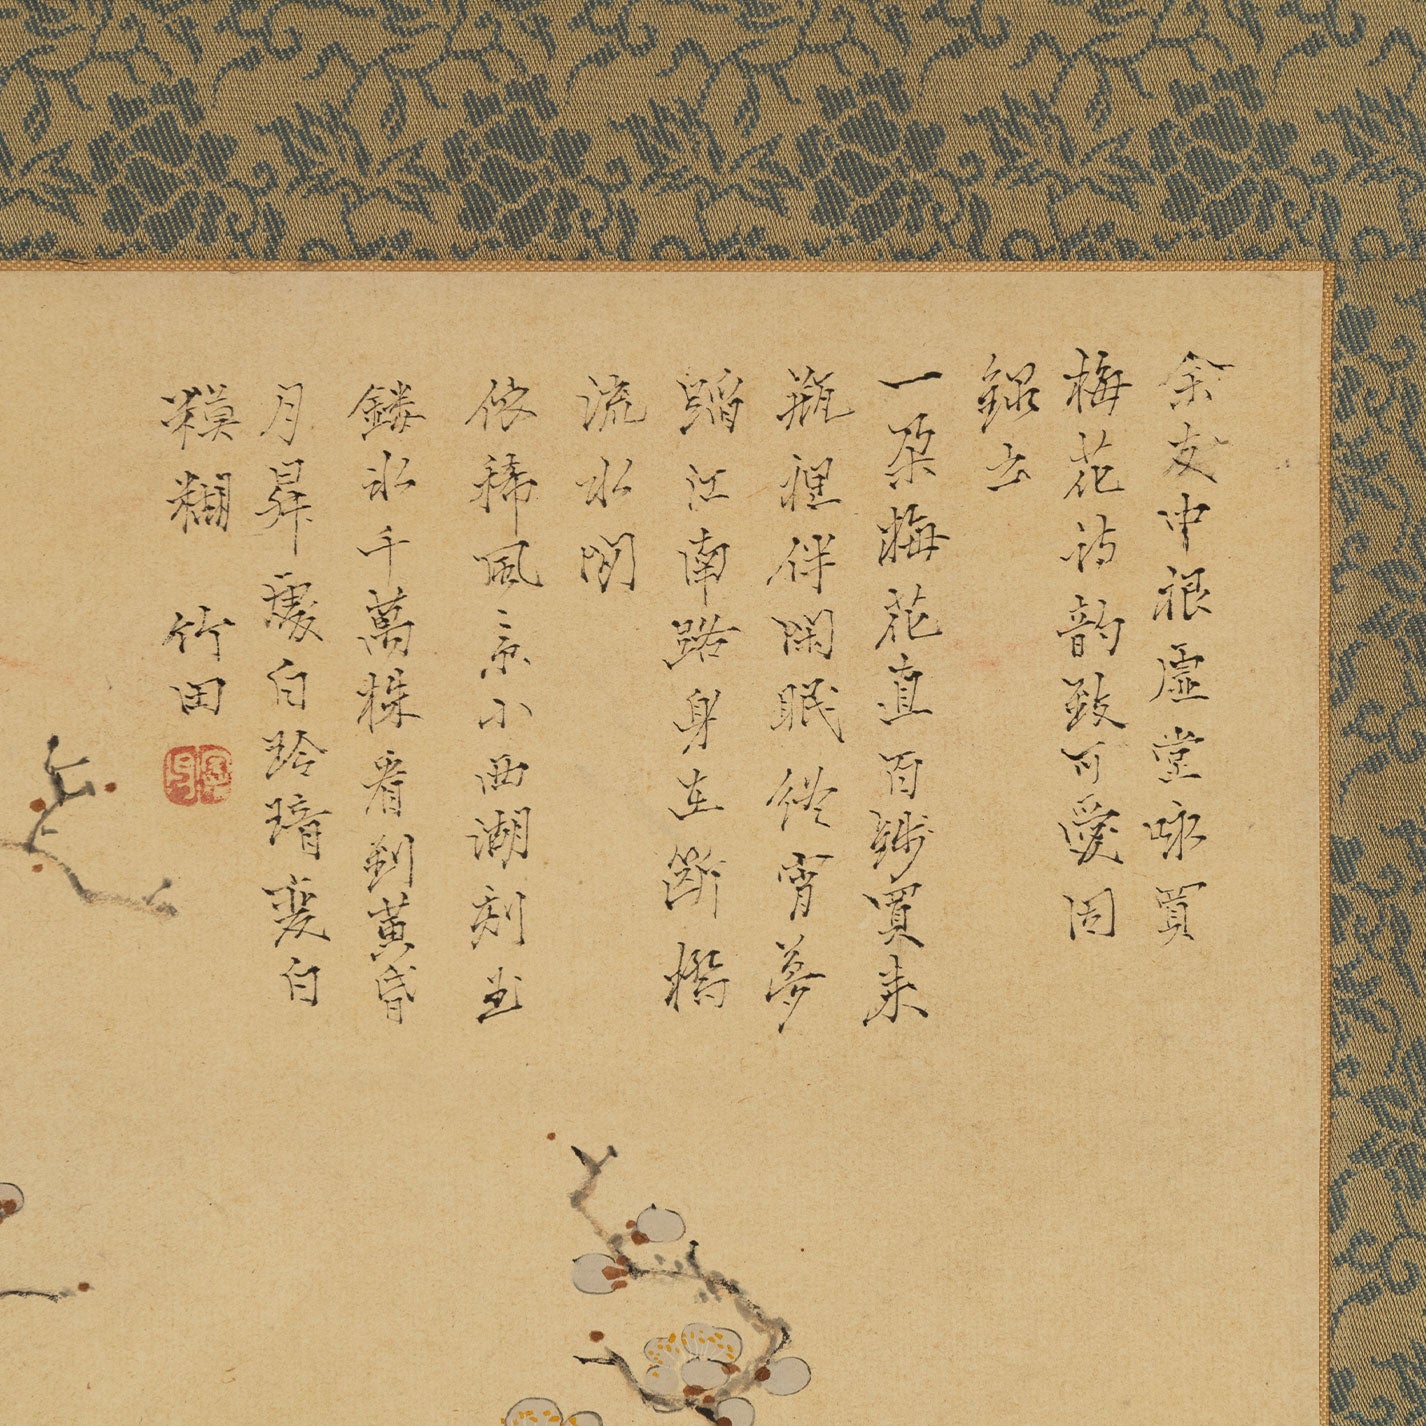 余友中根虚堂咏買
梅花詩韵致可愛因
録云
一朶梅花直百錢買来
瓶裡伴閑眠終宵夢
蹈江南路身在断橋
流水間
依稀風景小西湖刻玉
鏤氷千萬株看到黄昏
月昇處白玲瓏變白
糢糊 竹田